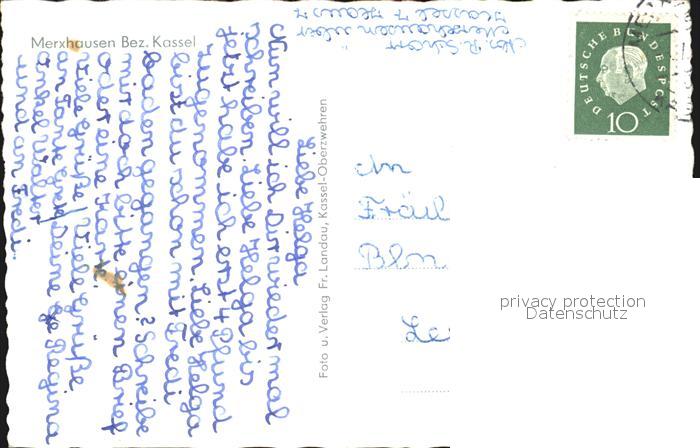 Merxhausen Bez. Kassel
Liebe Helga
Nun will ich Dir wieder mal
schreiben. Liebe Helga bis
jetzt habe ich erst 4 Pfund
zugenommen. Liebe Helga
bist du schon mit Fredi
baden gegangen? Schreibe
mir doch bitte einen Brief
oder eine Karte.
Viele Grüße! Viele Grüße
an Tante Deine Regina
onkel Walter
und an Fredi.
Foto u. Verlag Fr. Landau, Kassel-Oberzwehren
Abs. R. Schorr
Merxhausen über
Kassel 7 Haus 7
DEUTSCHE BUNDESPOST
10
An
Fräul
Blon
Le
privacy protection
Datenschutz